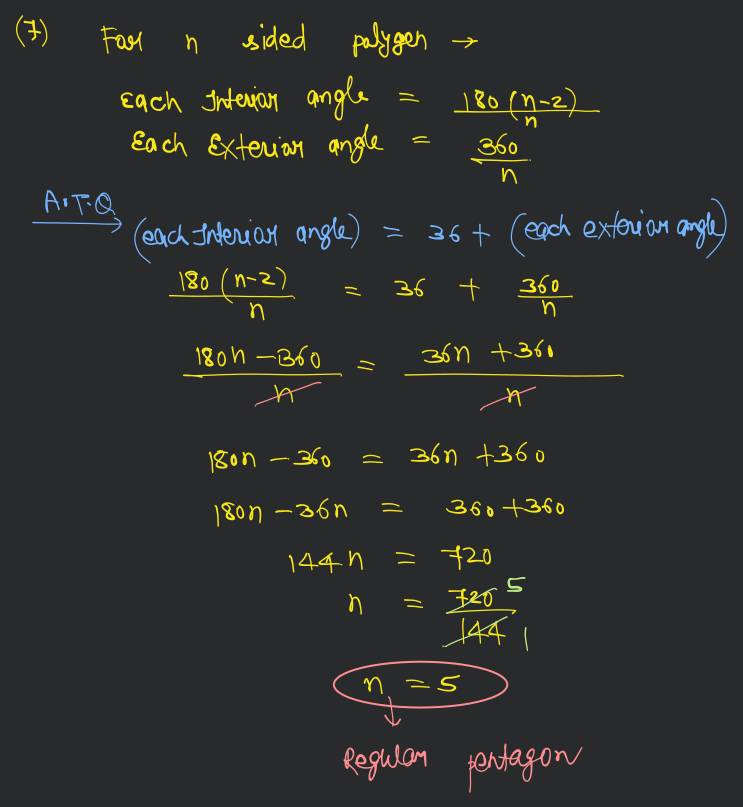 (7) For n sided polygon →
each Interior angle = 180(n-2)/n
Each Exterior angle = 360/n
A.T.Q → (each Interior angle) = 36 + (each exterior angle)
180(n-2)/n = 36 + 360/n
180n - 360/n = 36n + 360/n
180n - 360 = 36n + 360
180n - 36n = 360 + 360
144n = 720
n = 720/144 5 1
n = 5
Regular pentagon